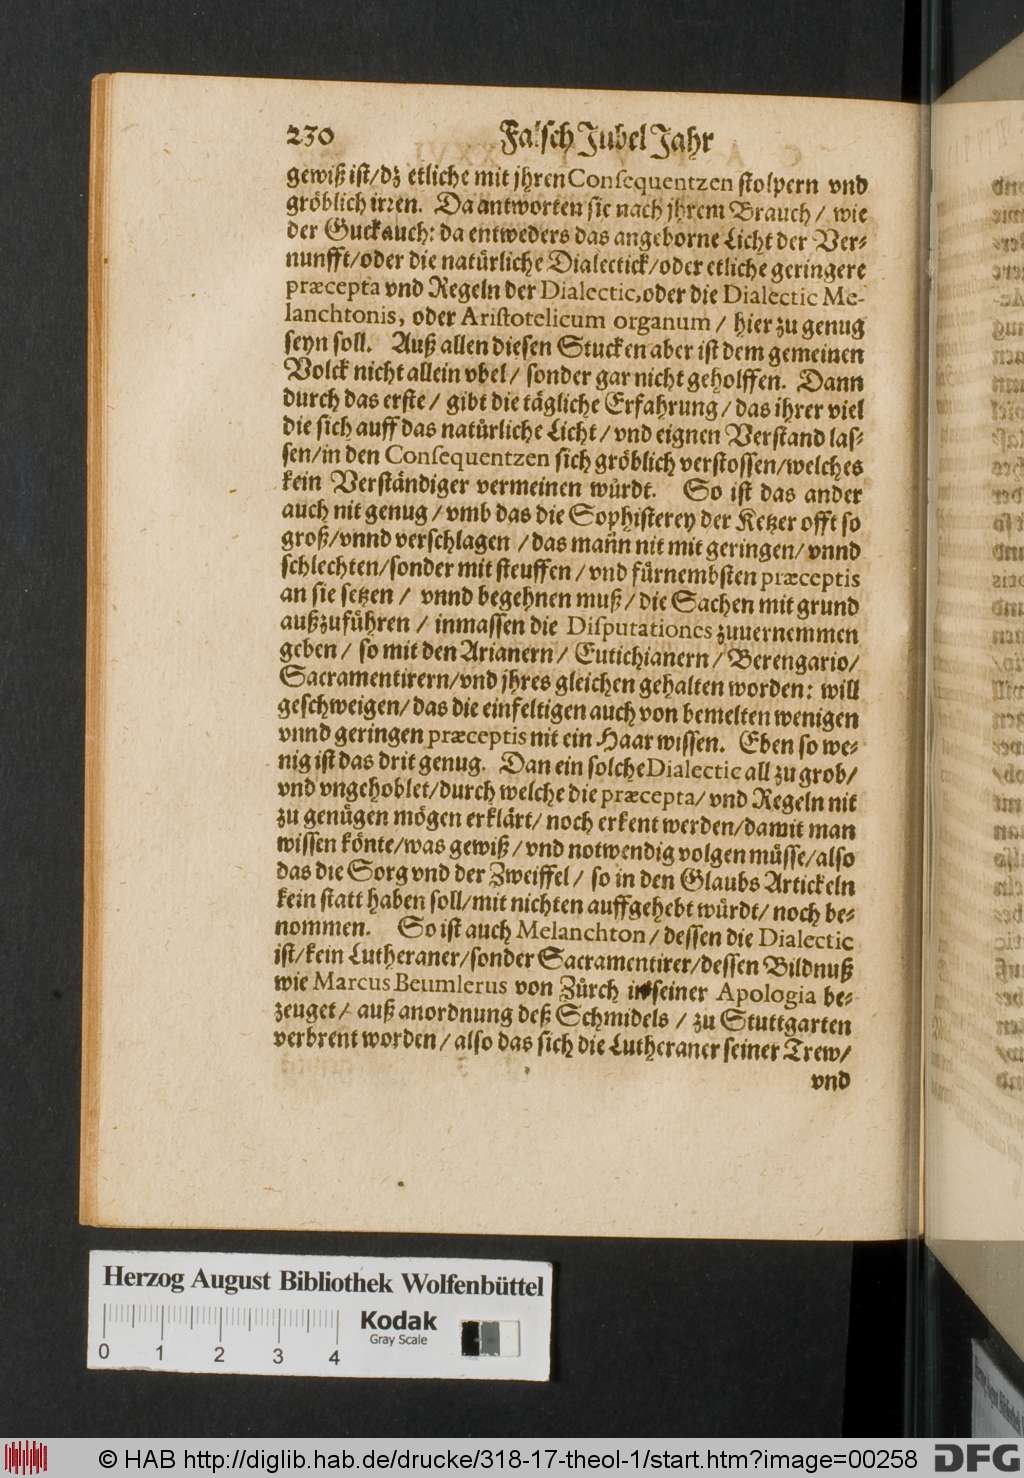 230 Falsch Jubel Jahr
gewiß ist/dz etliche mit jhren Consequentzen stolpern vnd
gröblich irren. Da antworten sie nach jhrem Brauch/ wie
der Guckauch: da entweders das angeborne Licht der Ver-
nunfft/oder die natürliche Dialectick/oder etliche geringere
præcepta vnd Regeln der Dialectic, oder die Dialectic Me-
lanchtonis, oder Aristotelicum organum/ hier zu genug
seyn soll. Auß allen diesen Stucken aber ist dem gemeinen
Volck nicht allein vbel/ sonder gar nicht geholffen. Dann
durch das erste/ gibt die tägliche Erfahrung/ das ihrer viel
die sich auff das natürliche Licht/ vnd eignen Verstand las-
sen/in den Consequentzen sich gröblich verstossen/welches
kein Verständiger vermeinen würdt. So ist das ander
auch nit genug/ vmb das die Sophisterey der Ketzer offt so
groß/vnnd verschlagen/das mañn nit mit geringen/ vnnd
schlechten/sonder mit steuffen/ vnd fürnembsten præceptis
an sie setzen/ vnnd begehnen muß/ die Sachen mit grund
außzuführen/ inmassen die Disputationes zuuernemmen
geben/ so mit den Arianern/ Eutichianern/ Berengario/
Sacramentirern/vnd jhres gleichen gehalten worden: will
geschweigen/ das die einfeltigen auch von bemelten wenigen
vnnd geringen præceptis nit ein Haar wissen. Eben so we-
nig ist das drit genug. Dan ein solche Dialectic all zu grob/
vnd vngehoblet/durch welche die præcepta/ vnd Regeln nit
zu genügen mögen erklärt/ noch erkent werden/damit man
wissen könte/was gewiß/ vnd notwendig volgen müsse/also
das die Sorg vnd der Zweiffel/ so in den Glaubs Artickeln
kein statt haben soll/mit nichten auffgehebt würdt/ noch be-
nommen. So ist auch Melanchton/ dessen die Dialectic
ist/kein Lutheraner/sonder Sacramentirer/dessen Bildnuß
wie Marcus Beumlerus von Zürch in seiner Apologia be-
zeuget/ auß anordnung deß Schmidels/ zu Stuttgarten
verbrent worden/ also das sich die Lutheraner seiner Trew/
vnd
Herzog August Bibliothek Wolfenbüttel
Kodak
Gray Scale
0 1 2 3 4
© HAB http://diglib.hab.de/drucke/318-17-theol-1/start.htm?image=00258 DFG